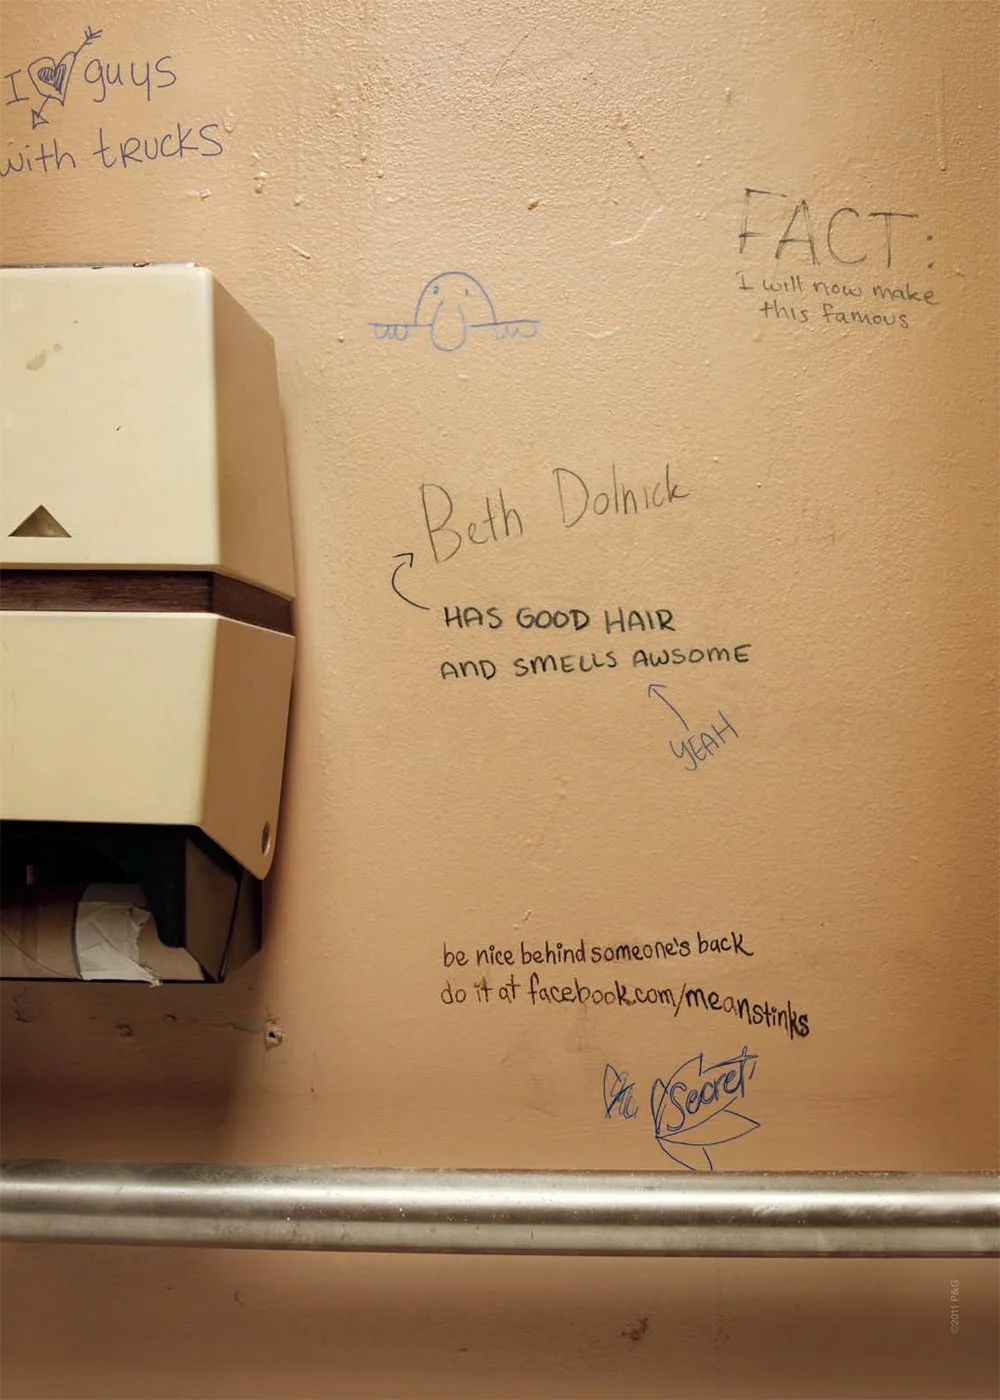 I guys
with trucks
FACT:
I will now make
this famous
Beth Dolnick
HAS GOOD HAIR
AND SMELLS AWSOME
YEAH
be nice behind someone's back
do it at facebook.com/meanstinks
Secret
©2011 P&G